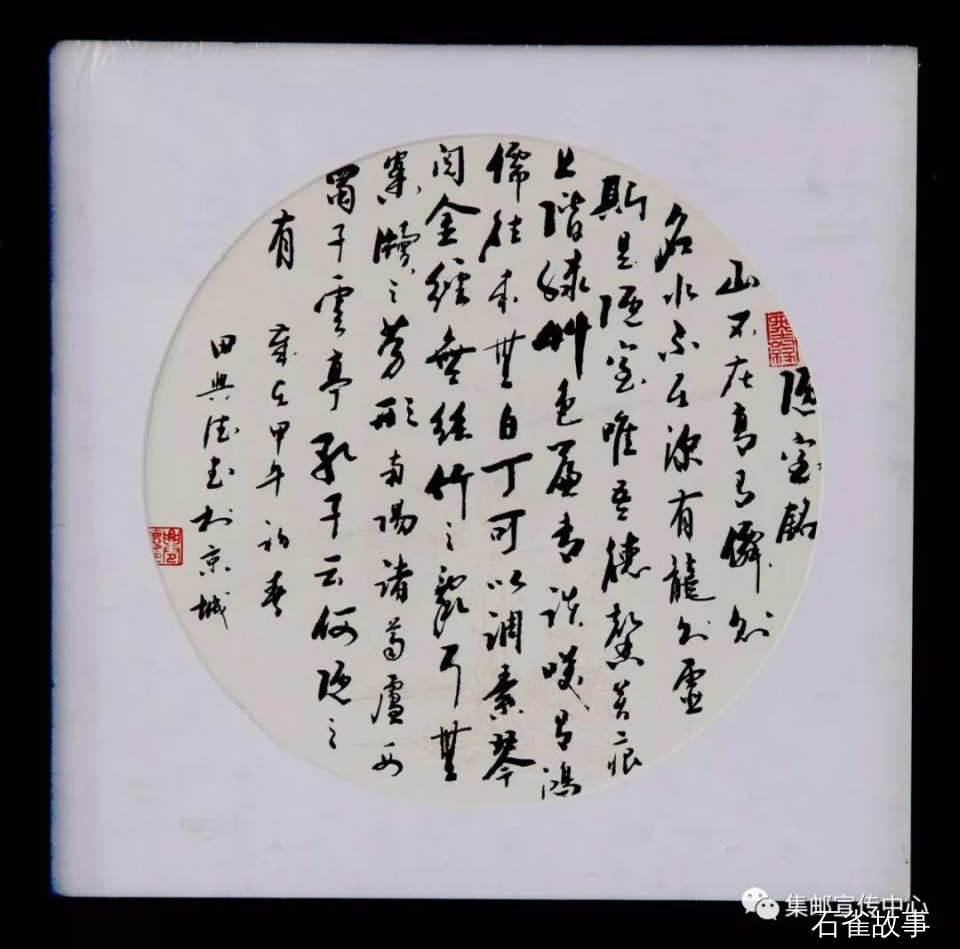 陋室銘
山不在高有僊則
名水不在深有龍則靈
斯是陋室唯吾德馨苔痕
上階緑艸色簾青談咲有鴻
儒往来無白丁可以調素琴
閲金經無絲竹之亂耳無
案牘之劳形南陽諸葛廬西
蜀子雲亭孔子云何陋之
有
歲在甲午初春
田興德书於京城
集邮宣传中心
石雀故事